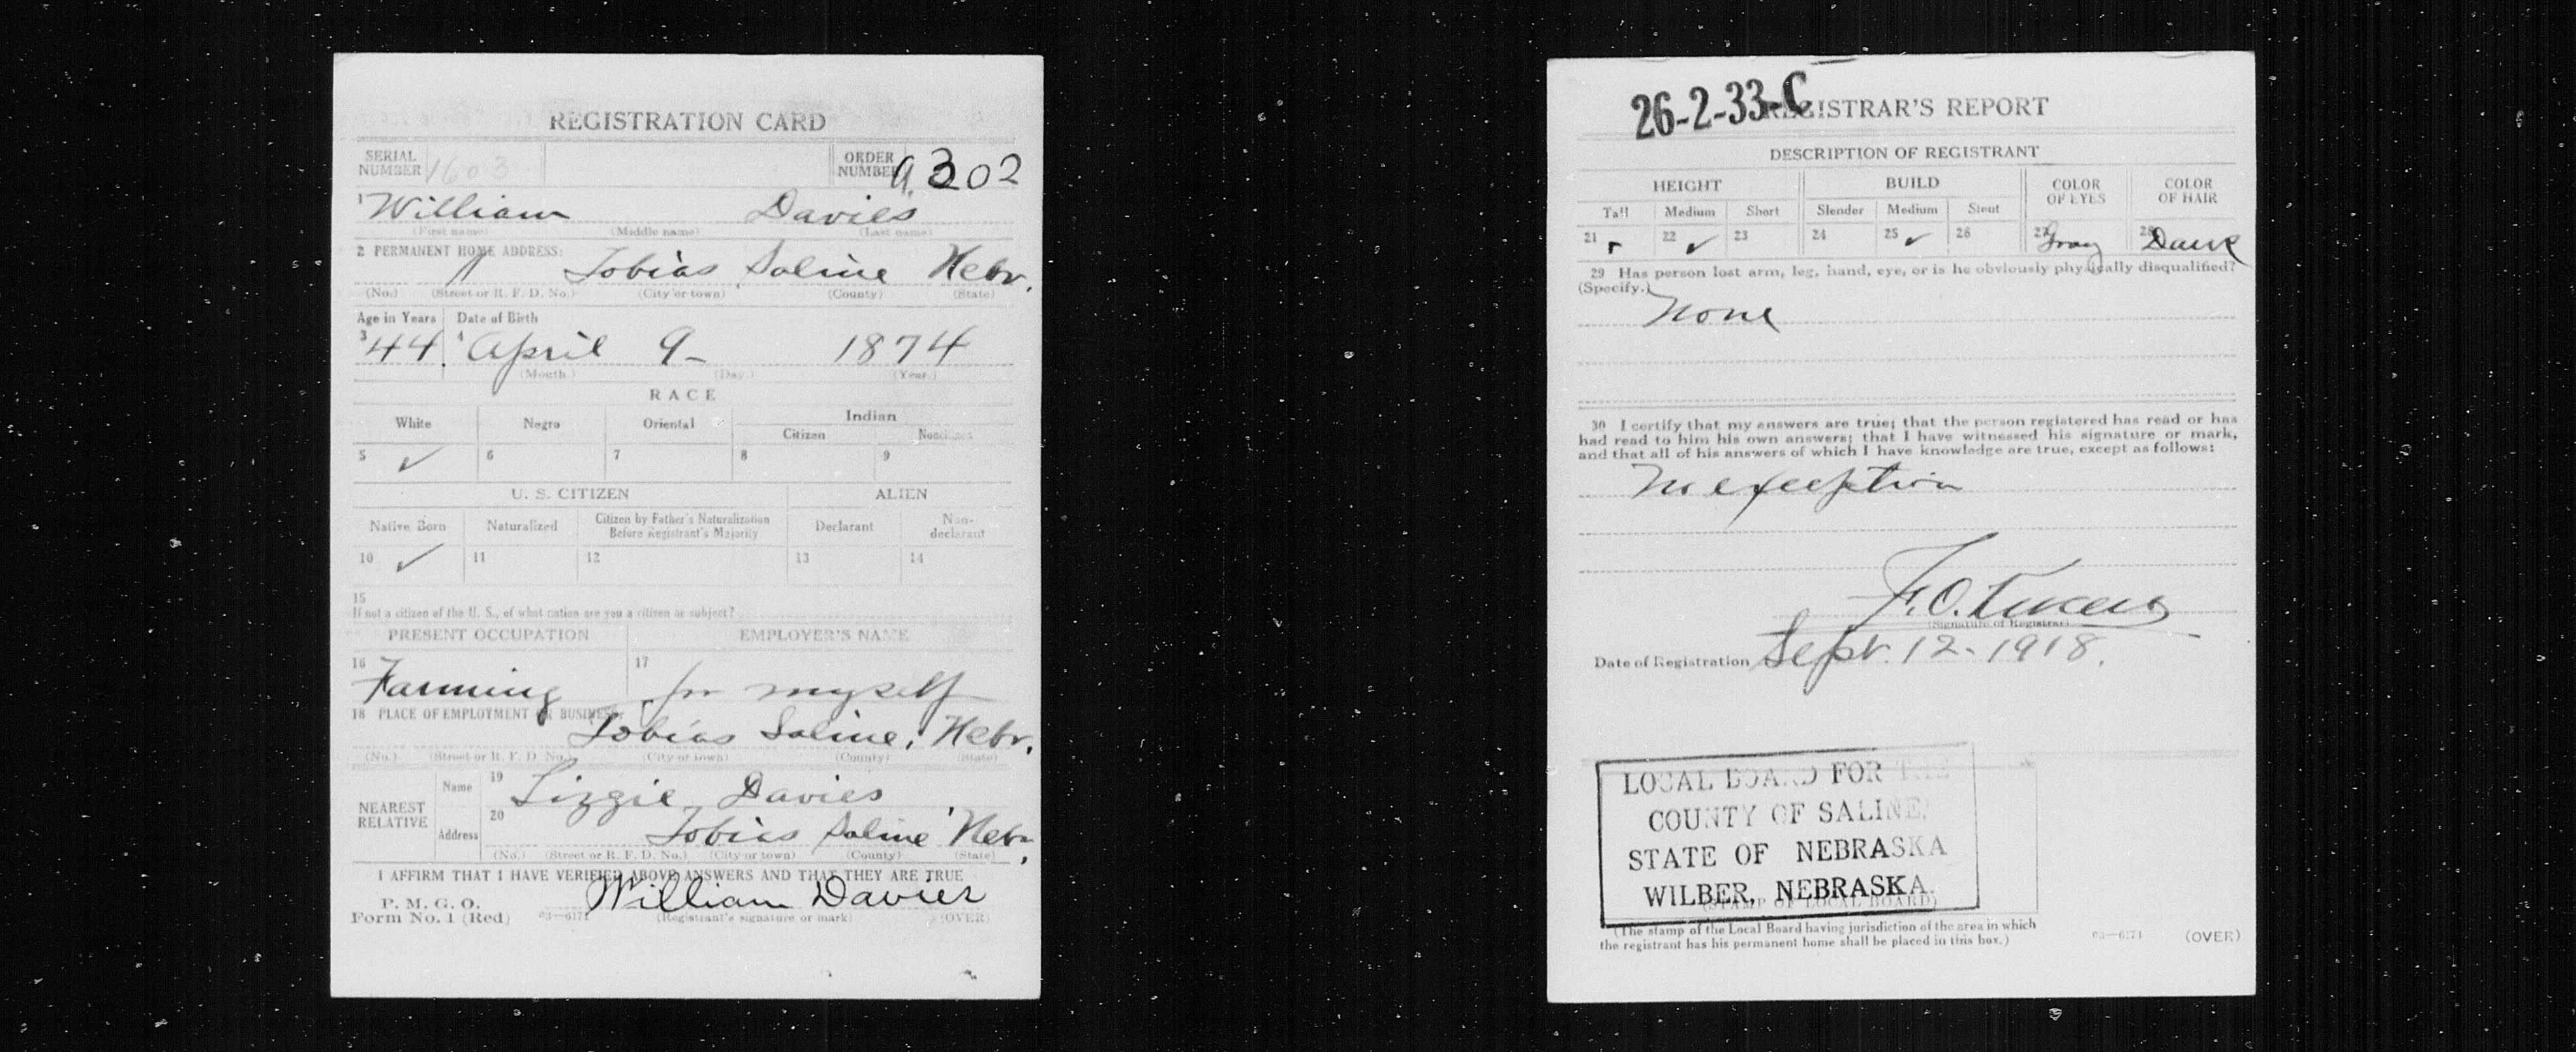 REGISTRATION CARD
SERIAL NUMBER 1603 ORDER NUMBER A 3202
1 William Davies
(First name) (Middle name) (Last name)
2 PERMANENT HOME ADDRESS:
Tobias Saline Nebr.
(No.) (Street or R. F. D. No.) (City or town) (County) (State)
Age in Years Date of Birth
3 44 4 April 9- 1874
(Month.) (Day.) (Year.)
RACE
White Negro Oriental Indian
Citizen Noncitizen
5 ✓ 6 7 8 9
U. S. CITIZEN ALIEN
Native Born Naturalized Citizen by Father's Naturalization Before Registrant's Majority Declarant Non-declarant
10 ✓ 11 12 13 14
15
If not a citizen of the U. S., of what nation are you a citizen or subject?
PRESENT OCCUPATION EMPLOYER'S NAME
16 Farming 17 for myself
18 PLACE OF EMPLOYMENT OR BUSINESS:
Tobias Saline, Nebr.
(No.) (Street or R. F. D. No.) (City or town) (County) (State)
NEAREST RELATIVE Name 19 Lizzie Davies
Address 20 Tobias Saline Nebr.
(No.) (Street or R. F. D. No.) (City or town) (County) (State)
I AFFIRM THAT I HAVE VERIFIED ABOVE ANSWERS AND THAT THEY ARE TRUE
P. M. G. O.
Form No. 1 (Red) 03—6171 William Davies
(Registrant's signature or mark) (OVER)
26-2-33-C
REGISTRAR'S REPORT
DESCRIPTION OF REGISTRANT
HEIGHT BUILD COLOR OF EYES COLOR OF HAIR
Tall Medium Short Slender Medium Stout
21 22 ✓ 23 24 25 ✓ 26 27 Gray 28 Dark
29 Has person lost arm, leg, hand, eye, or is he obviously physically disqualified?
(Specify.)
None
30 I certify that my answers are true; that the person registered has read or has
had read to him his own answers; that I have witnessed his signature or mark,
and that all of his answers of which I have knowledge are true, except as follows:
No exception
F. O.
(Signature of Registrar)
Date of Registration Sept. 12-1918.
LOCAL BOARD FOR THE
COUNTY OF SALINE,
STATE OF NEBRASKA
WILBER, NEBRASKA.
(STAMP OF LOCAL BOARD)
(The stamp of the Local Board having jurisdiction of the area in which
the registrant has his permanent home shall be placed in this box.)
03—6171 (OVER)